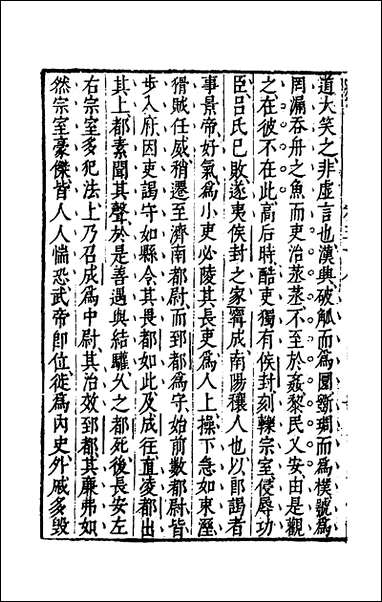 道大笑之非虛言也漢興破觚而爲圜斲琱而爲樸號爲
罔漏吞舟之魚而吏治蒸蒸不至於姦黎民又安由是觀
之在彼不在此高后時酷吏獨有侯封刻轢宗室侵辱功
臣呂氏已敗遂夷侯封之家寗成南陽穰人也以郎謁者
事景帝好氣爲小吏必陵其長吏爲人上操下急如束溼
猾賊任威稍遷至濟南都尉而郅都爲守始前數都尉皆
步入府因吏謁守如縣令其畏都如此及成往直凌都出
其上都素聞其聲於是善遇與結驩久之都死後長安左
右宗室多犯法上乃召成爲中尉其治效郅都其廉弗如
然宗室豪傑皆人人惴恐武帝卽位徙爲內史外戚多毀